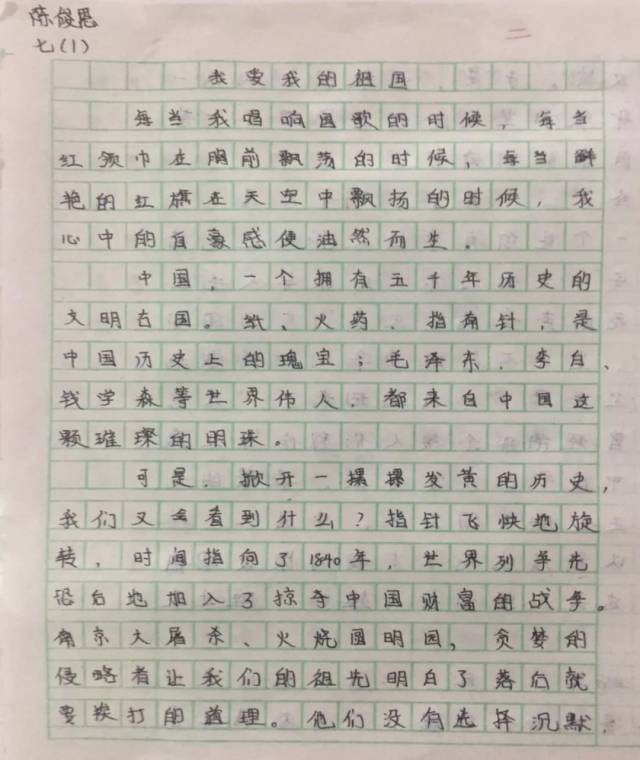 陈俊恩
七(1)
二
我爱我的祖国
每当我唱响国歌的时候，每当
红领巾在胸前飘荡的时候，每当鲜
艳的红旗在天空中飘扬的时候，我
心中的自豪感便油然而生。
中国，一个拥有五千年历史的
文明古国。纸、火药、指南针，是
中国历史上的瑰宝；毛泽东、李白、
钱学森等世界伟人，都来自中国这
颗璀璨的明珠。
可是，掀开一摞摞发黄的历史，
我们又会看到什么？指针飞快地旋
转，时间指向了1840年，世界列争先
恐后地加入了掠夺中国财富的战争。
南京大屠杀、火烧圆明园，贪婪的
侵略者让我们的祖先明白了落后就
要挨打的道理。他们没有选择沉默，